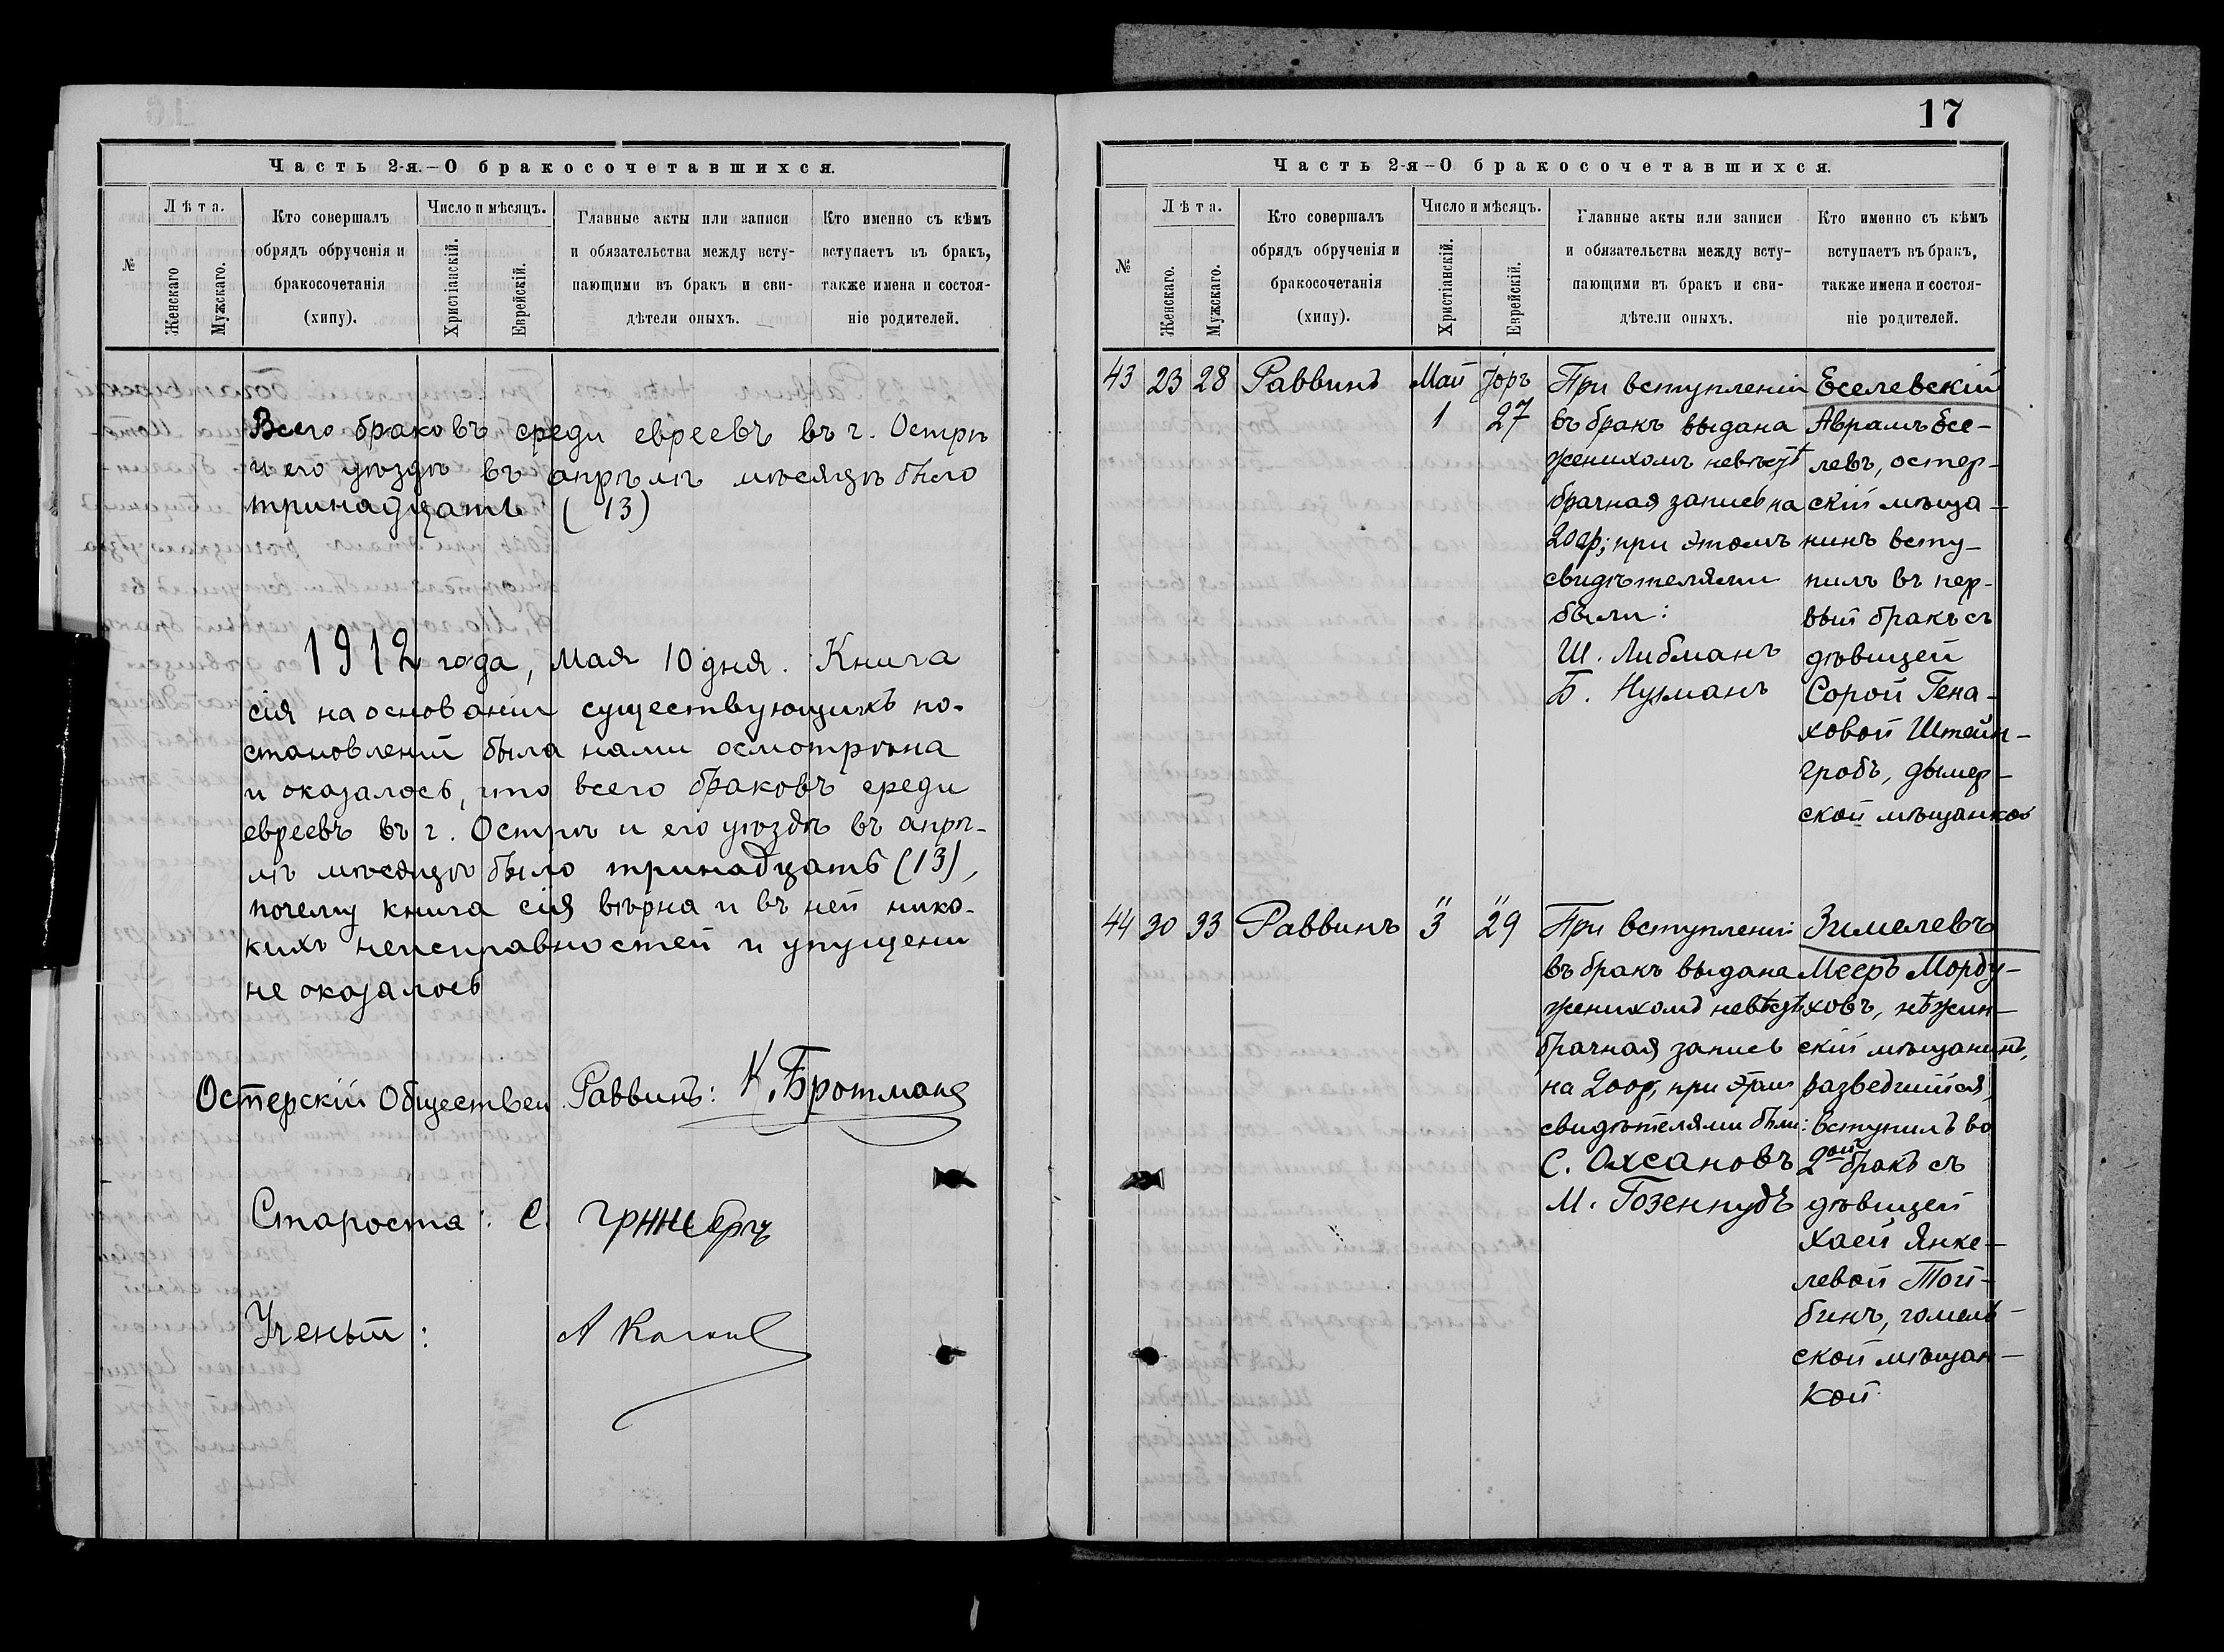 Часть 2-я.—О бракосочетавшихся.
№
Лѣта.
Женскаго
Мужскаго.
Кто совершалъ
обрядъ обрученія и
бракосочетанія
(хипу).
Число и мѣсяцъ.
Христіанскій.
Еврейскій.
Главные акты или записи
и обязательства между всту-
пающими въ бракъ и сви-
дѣтели оныхъ.
Кто именно съ кѣмъ
вступаетъ въ бракъ,
также имена и состоя-
ніе родителей.
Всего браковъ среди евреевъ въ г. Острѣ
и его уѣздѣ въ апрѣлѣ мѣсяцѣ было
тринадцать (13)
1912 года, мая 10 дня. Книга
сія на основаніи существующихъ по-
становленій была нами осмотрѣна
и оказалось, что всего браковъ среди
евреевъ въ г. Острѣ и его уѣздѣ въ апрѣ-
лѣ мѣсяцѣ было тринадцать (13),
почему книга сія вѣрна и въ ней ника-
кихъ неисправностей и упущени
не оказалось
Остерскій Обществен. Раввинъ: К. Бротманъ
Староста: С. Гринбергъ
Ученый: А
17
Часть 2-я—О бракосочетавшихся.
№
Лѣта.
Женскаго.
Мужскаго.
Кто совершалъ
обрядъ обрученія и
бракосочетанія
(хипу).
Число и мѣсяцъ.
Христіанскій.
Еврейскій.
Главные акты или записи
и обязательства между всту-
пающими въ бракъ и сви-
дѣтели оныхъ.
Кто именно съ кѣмъ
вступаетъ въ бракъ,
также имена и состоя-
ніе родителей.
43 23 28 Раввинъ Май 1 Іоръ 27
При вступленіи
въ бракъ выдана
женихомъ невѣстѣ
брачная запись на
200р; при этомъ
свидѣтелями
были:
Ш. Либманъ
Б. Нузманъ
Еселевскій
Аврамъ Есе-
левъ, остер-
скій мѣща-
нинъ всту-
пилъ въ пер-
вый бракъ съ
дѣвицей
Сорой Гена-
ховой Штейн-
гробъ, дымер-
ской мѣщанкой
44 30 33 Раввинъ " 3 " 29
При вступленіи
въ бракъ выдана
женихомъ невѣстѣ
брачная запись
на 200р, при этомъ
свидѣтелями были:
С. Охсановъ
М. Гозенпудъ
Зималевъ
Мееръ Морду-
ховъ, нѣжин-
скій мѣщанинъ,
разведшийся,
вступилъ во
2ой бракъ съ
дѣвицей
Хаей Янке-
левой Той-
бинъ, гомель-
ской мѣщан-
кой